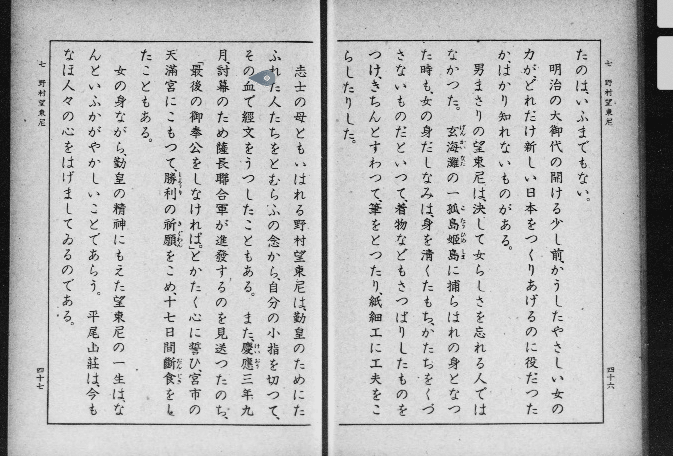 七 野村望東尼
たのは、いふまでもない。
明治の大御代の開ける少し前、かうしたやさしい女の
力が、どれだけ新しい日本をつくりあげるのに役だつた
か、はかり知れないものがある。
男まさりの望東尼は、決して女らしさを忘れる人では
なかつた。玄海灘の一孤島姫島に捕らはれの身となつ
た時も、女の身だしなみは、身を清くたもち、かたちをくづ
さないものだといつて、着物などもさつぱりしたものを
つけ、きちんとすわつて、筆をとつたり、紙細工に工夫をこ
らしたりした。
四十六
志士の母ともいはれる野村望東尼は、勤皇のためにた
ふれた人たちをとむらふ念から、自分の小指を切つて、
その血で經文をうつしたこともある。また、慶應三年九
月、討幕のため薩長聯合軍が進發するのを見送つたのち、
「最後の御奉公をしなければ。」とかたく心に誓ひ、宮市の
天滿宮にこもつて、勝利の祈願をこめ、十七日間斷食をし
たこともある。
女の身ながら、勤皇の精神にもえた望東尼の一生は、な
んといふかがやかしいことであらう。平尾山莊は、今も
なほ人々の心をはげましてゐるのである。
七 野村望東尼
四十七